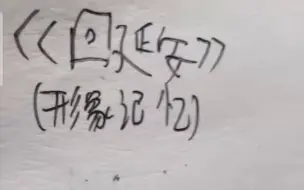 《回延安》
(形象记忆)